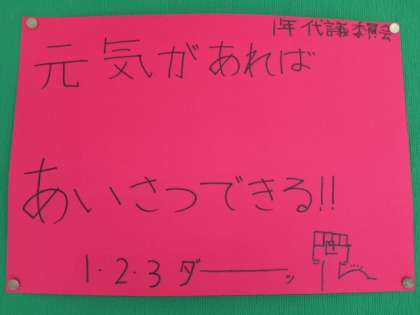 1年 代議委員会
元気があれば
あいさつできる!!
1・2・3 ダーッ